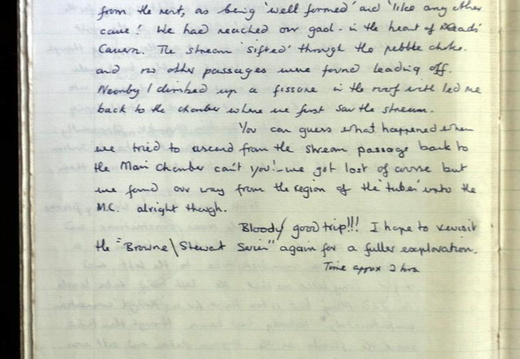 from the rest, as being 'well formed' and 'like any other
cave'! We had reached our goal - in the heart of Reads'
Cavern. The stream 'sifted' through the pebble choke.
and no other passages were found leading off.
Nearby I climbed up a fissure in the roof wich led me
back to the chamber where we first saw the stream.
You can guess what happened when
we tried to ascend from the stream passage back to
the Main Chamber can't you! - we got lost of course but
we found our way from the region of the 'tubes' into the
M.C. alright though.
Bloody good trip!!! I hope to revisit
the "Browne\Stewart Series" again for a fuller exploration.
Time approx 2 hrs